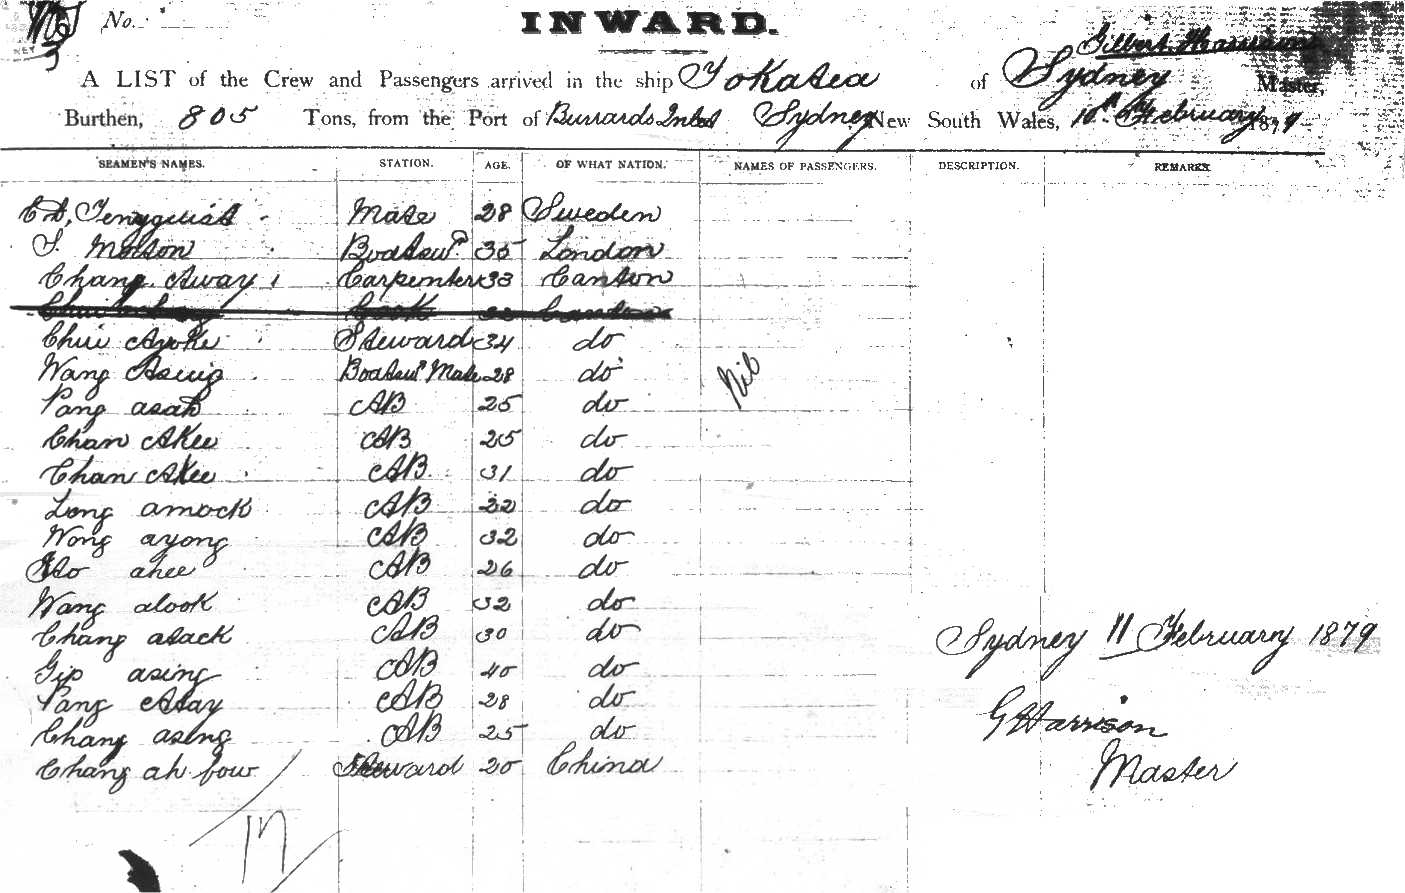 No.
INWARD.
Gilbert
A LIST of the Crew and Passengers arrived in the ship Tokatea of Sydney Master,
Burthen, 805 Tons, from the Port of Burrards Inlet Sydney New South Wales, 10th February 1879
SEAMEN'S NAMES. STATION. AGE. OF WHAT NATION. NAMES OF PASSENGERS. DESCRIPTION. REMARKS
Mate 28 Sweden
Boatswn 35 London
Chang Away Carpenter 33 Canton
Cook
Chiu Ayoke Steward 34 do
Wang Asing Boatswn Mate 28 do
Nil
Pang asah AB 25 do
Chan AKee AB 25 do
Chan AKee AB 31 do
Long amock AB 22 do
Wong ayong AB 32 do
Ho ahee AB 26 do
Wang alook AB 32 do
Chang asack AB 30 do
Sydney 11 February 1879
Gip asing AB 40 do
Pang Atay AB 28 do
G Harrison
Chang asing AB 25 do
Chang ah fow Steward 20 China
Master
17